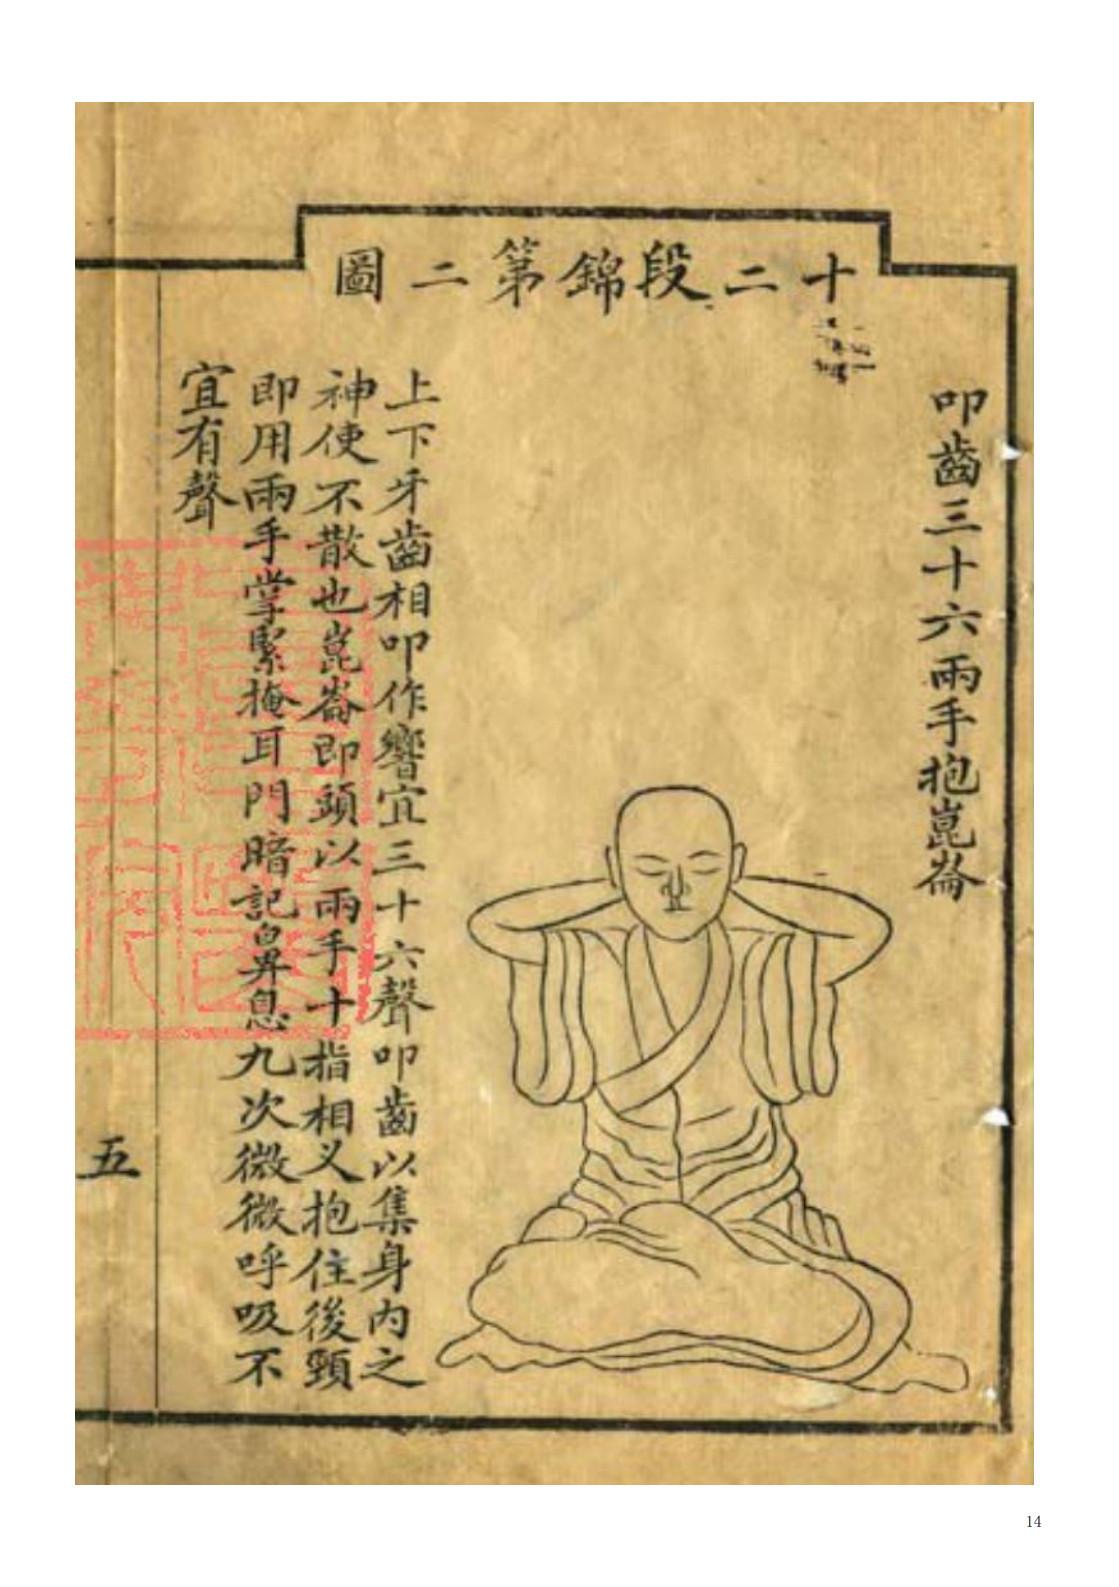 十二段錦第二圖
叩齒三十六兩手抱崑崙
上下牙齒相叩作響宜三十六聲叩齒以集身內之
神使不散也崑崙即頭以兩手十指相义抱住後頸
即用兩手掌緊掩耳門暗記鼻息九次微微呼吸不
宜有聲
五
14